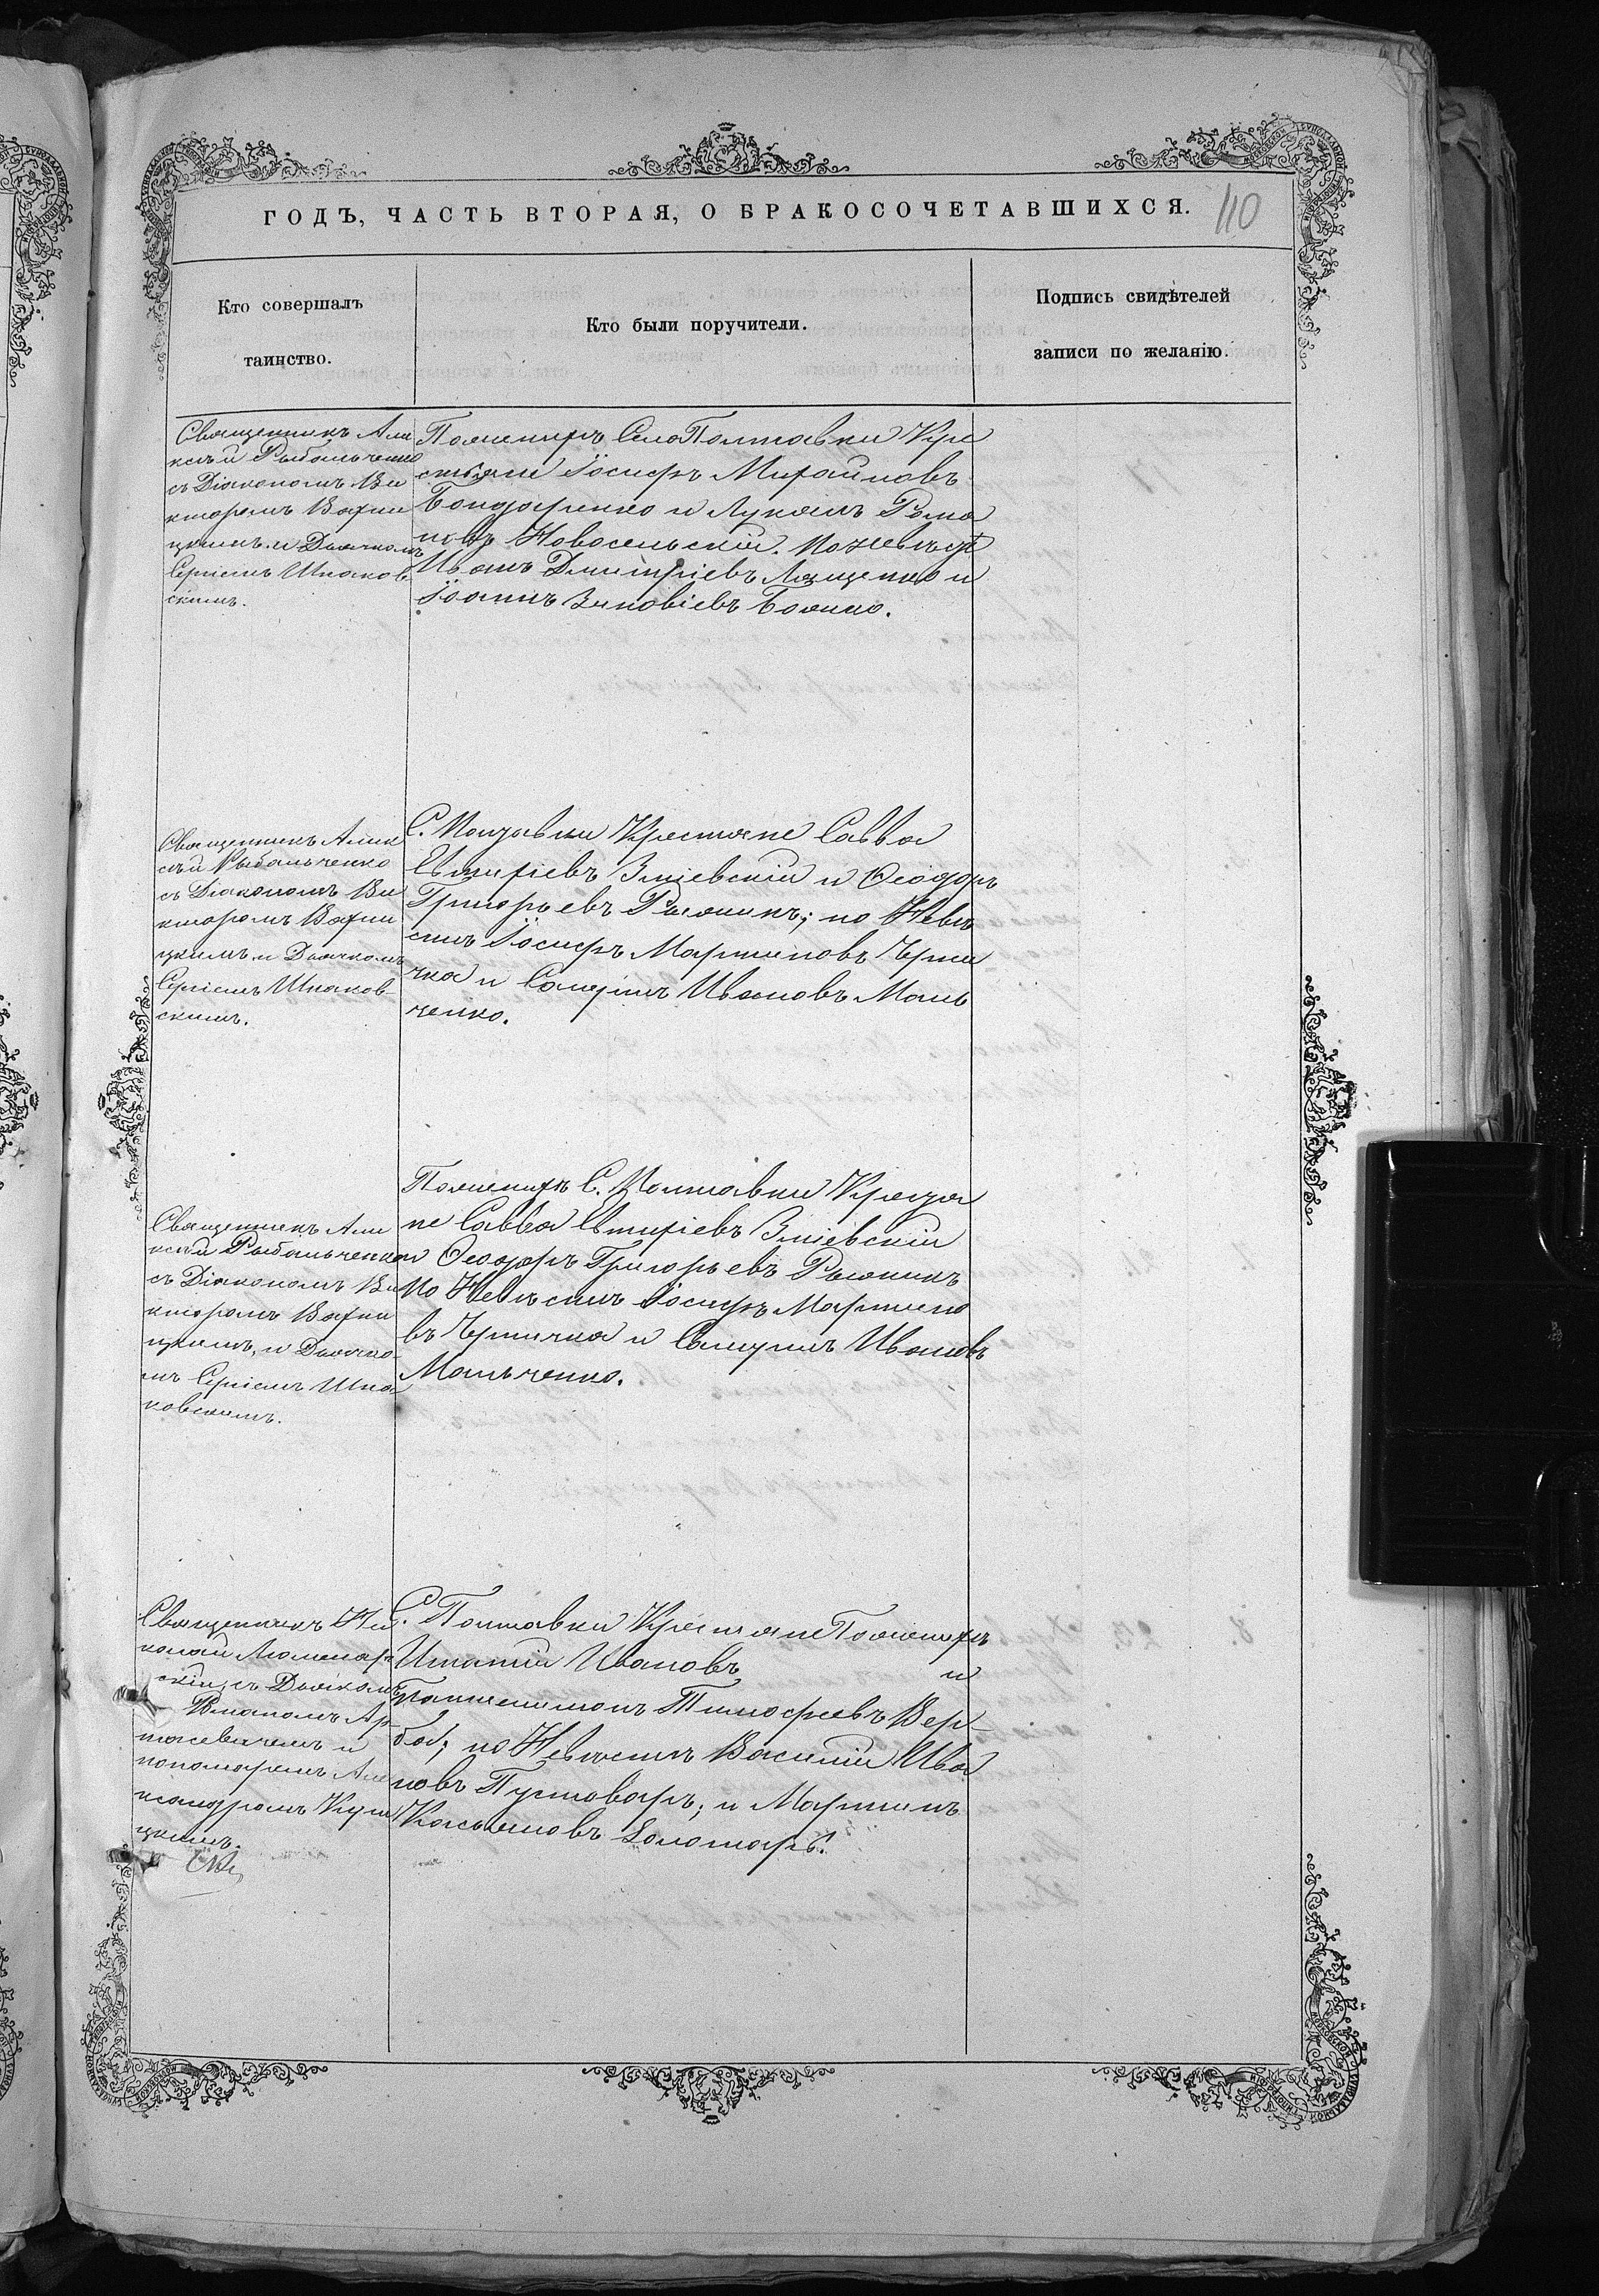 ГОДЪ, ЧАСТЬ ВТОРАЯ, О БРАКОСОЧЕТАВШИХСЯ.
110
Кто совершалъ
таинство.
Кто были поручители.
Подпись свидѣтелей
записи по желанію.
Священникъ Але
ксѣй Рыбальченко
съ Діакономъ Ви
кторомъ
и Дьячкомъ
Сергіемъ Шпаков
скимъ.
По женихѣ Села Полтавки Кре
стьяне Іосифъ Михайловъ
Бондаренко и Лукіанъ Рома
новъ Новосельскій. По невѣстѣ
Иванъ Дмитріевъ Лященко и
Іоаннъ Зиновіевъ Бойко.
Священникъ Алек
сѣй Рыбальченко
съ Діакономъ Ви
кторомъ
и Дьячкомъ
Сергіемъ Шпаков-
скимъ.
С. Полтавки Крестьяне Савва
Евтихіевъ Зміевскій и Ѳеодоръ
Григорьевъ; по Невѣ
стѣ Іосифъ Мартиновъ
и Самуилъ Ивановъ Маль
ченко.
Священникъ Але
ксѣй Рыбальченко
съ Діакономъ Ви
кторомъ
и Дьячко-
мъ Сергіемъ Шпа
ковскимъ.
По женихѣ С. Полтавки Крестья
не Савва Евтихіевъ Зміевскій
и Ѳеодоръ Григорьевъ
По Невѣстѣ Іосифъ Мартино
въ и Самуилъ Ивановъ
Мальченко.
Священникъ Ни
колай
скій съ Дьячкомъ
и
пономаремъ Але
ксандромъ
С. Полтавки Крестьяне По женихѣ
Игнатій Ивановъ и
Пантелимонъ Тимофеевъ Вер-
ба; по Невѣстѣ Василій Ива
новъ Пустоваръ; и Мартинъ
Касьяновъ Золотарь.